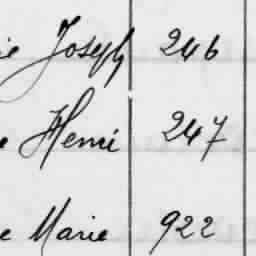 ie Joseph 246
e Henri 247
e Marie 922